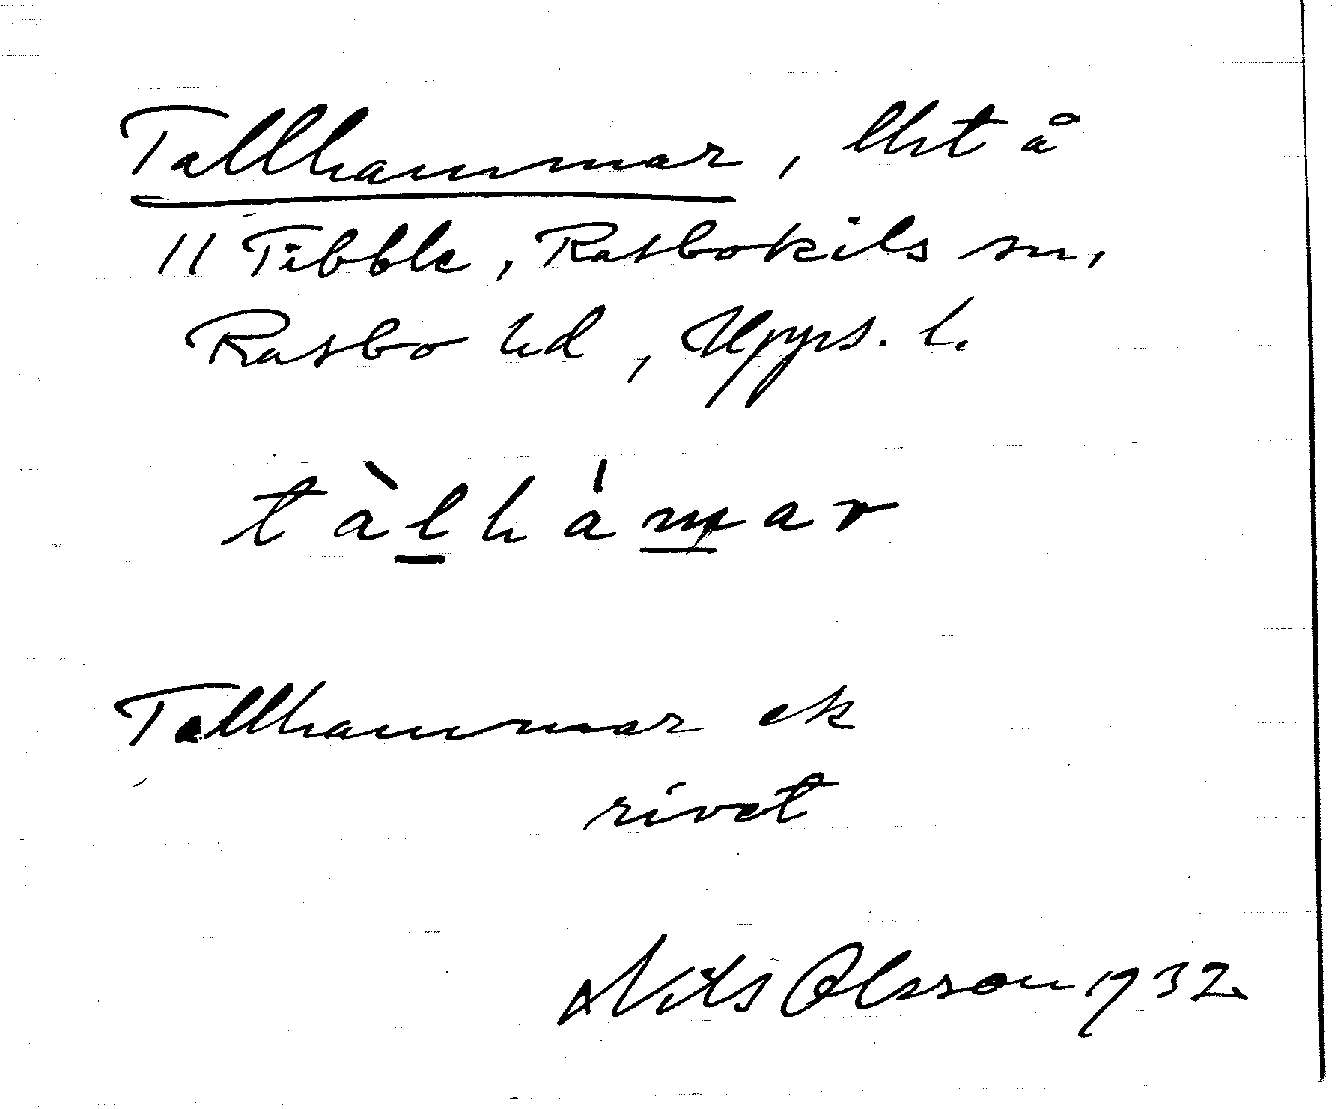 Tallhammar, lht å
11 Tibble, Rasbokils sn,
Rasbo hd, Upps. l.
tàlhámar
Tallhammar ek
rivet
Nils Olsson 1932